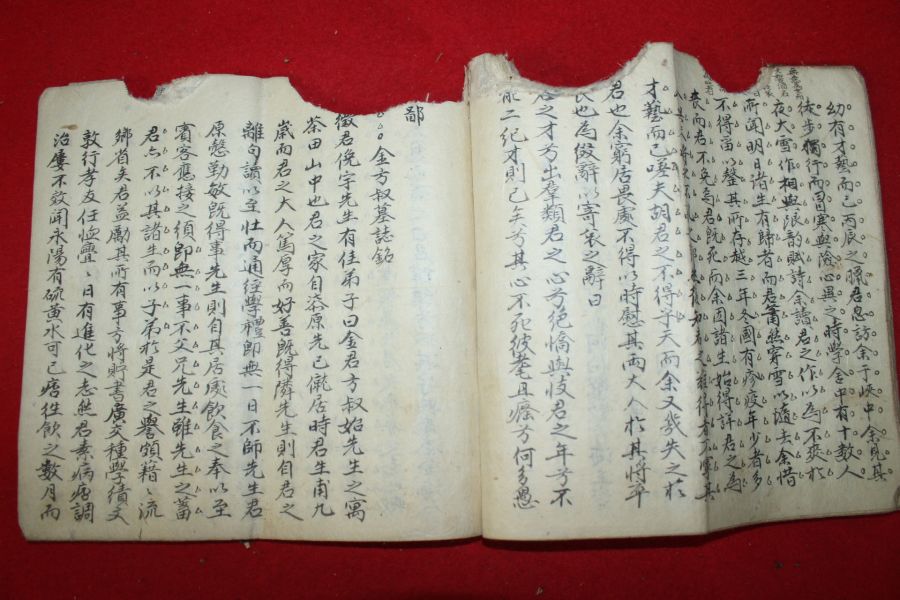 幼有才藝而已丙辰之臘君忽訪余于峽中余見其
徒步獨行而冒寒與險心異之時學舍中有十數人
夜大雪作相與浪韵賦詩余讀君之作以為不委於
所聞明日諸生有歸者而君蕭然穿雪以隨去余惜
不得面以罄其所存越三年冬國有疹疫年少者多
喪而君不免焉君旣死而余因諸生始得詳君之為
才藝而已噫夫胡君之不得乎天而余又哉失之於
君也余窮居畏處不得以時慰其兩大人於其將卒
也為倣辭以寄哀之辭曰
君之才兮出羣類君之心兮絶恌與忮君之年兮不
能二紀才則已矣兮其心不死彼耄且癃兮何多愚
鄙
金方叔墓誌銘
徵君俛宇先生有佳弟子曰金君方叔始先生之寓
茶田山中也君之家自漆原先已僦居時君生甫九
歲而君之大人篤厚而好善旣得隣先生則自君之
離句讀以至壯而通經學禮卽無一日不師先生君
原慤勤敏旣得事先生則自其居處飲食之奉以至
賓客應接之須卽無一事不父兄先生雖先生之蓄
君亦不以其諸生而以子弟於是君之譽頗藉〻流
鄉省矣君益勵其所有事方將貯書廣交種學績文
敦行孝友任恤亹〻日有進化之志然君素病痞調
治屢不效聞永陽有硫黃水可已痞往飲之數月而